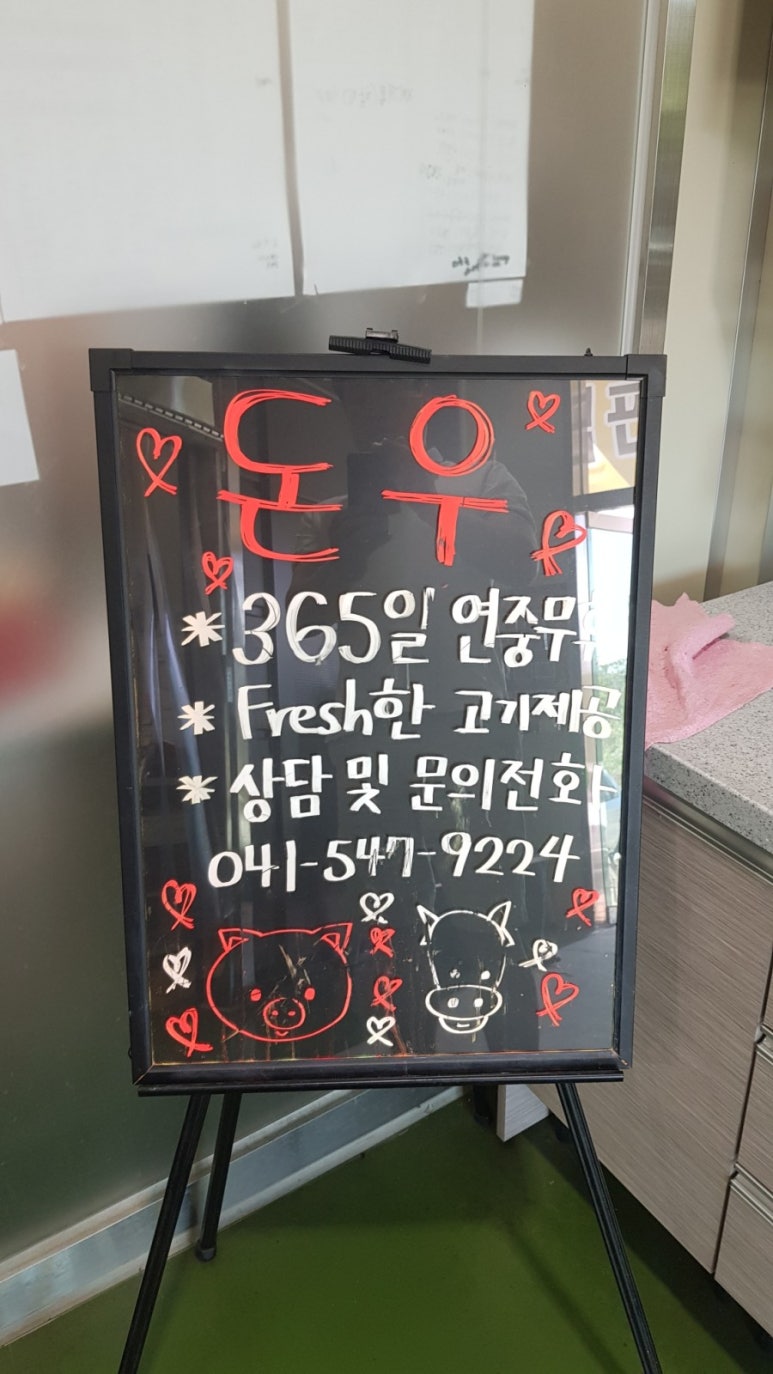 돈우
* 365일 연중무
* Fresh한 고기제공
* 상담 및 문의전화
041-547-9224